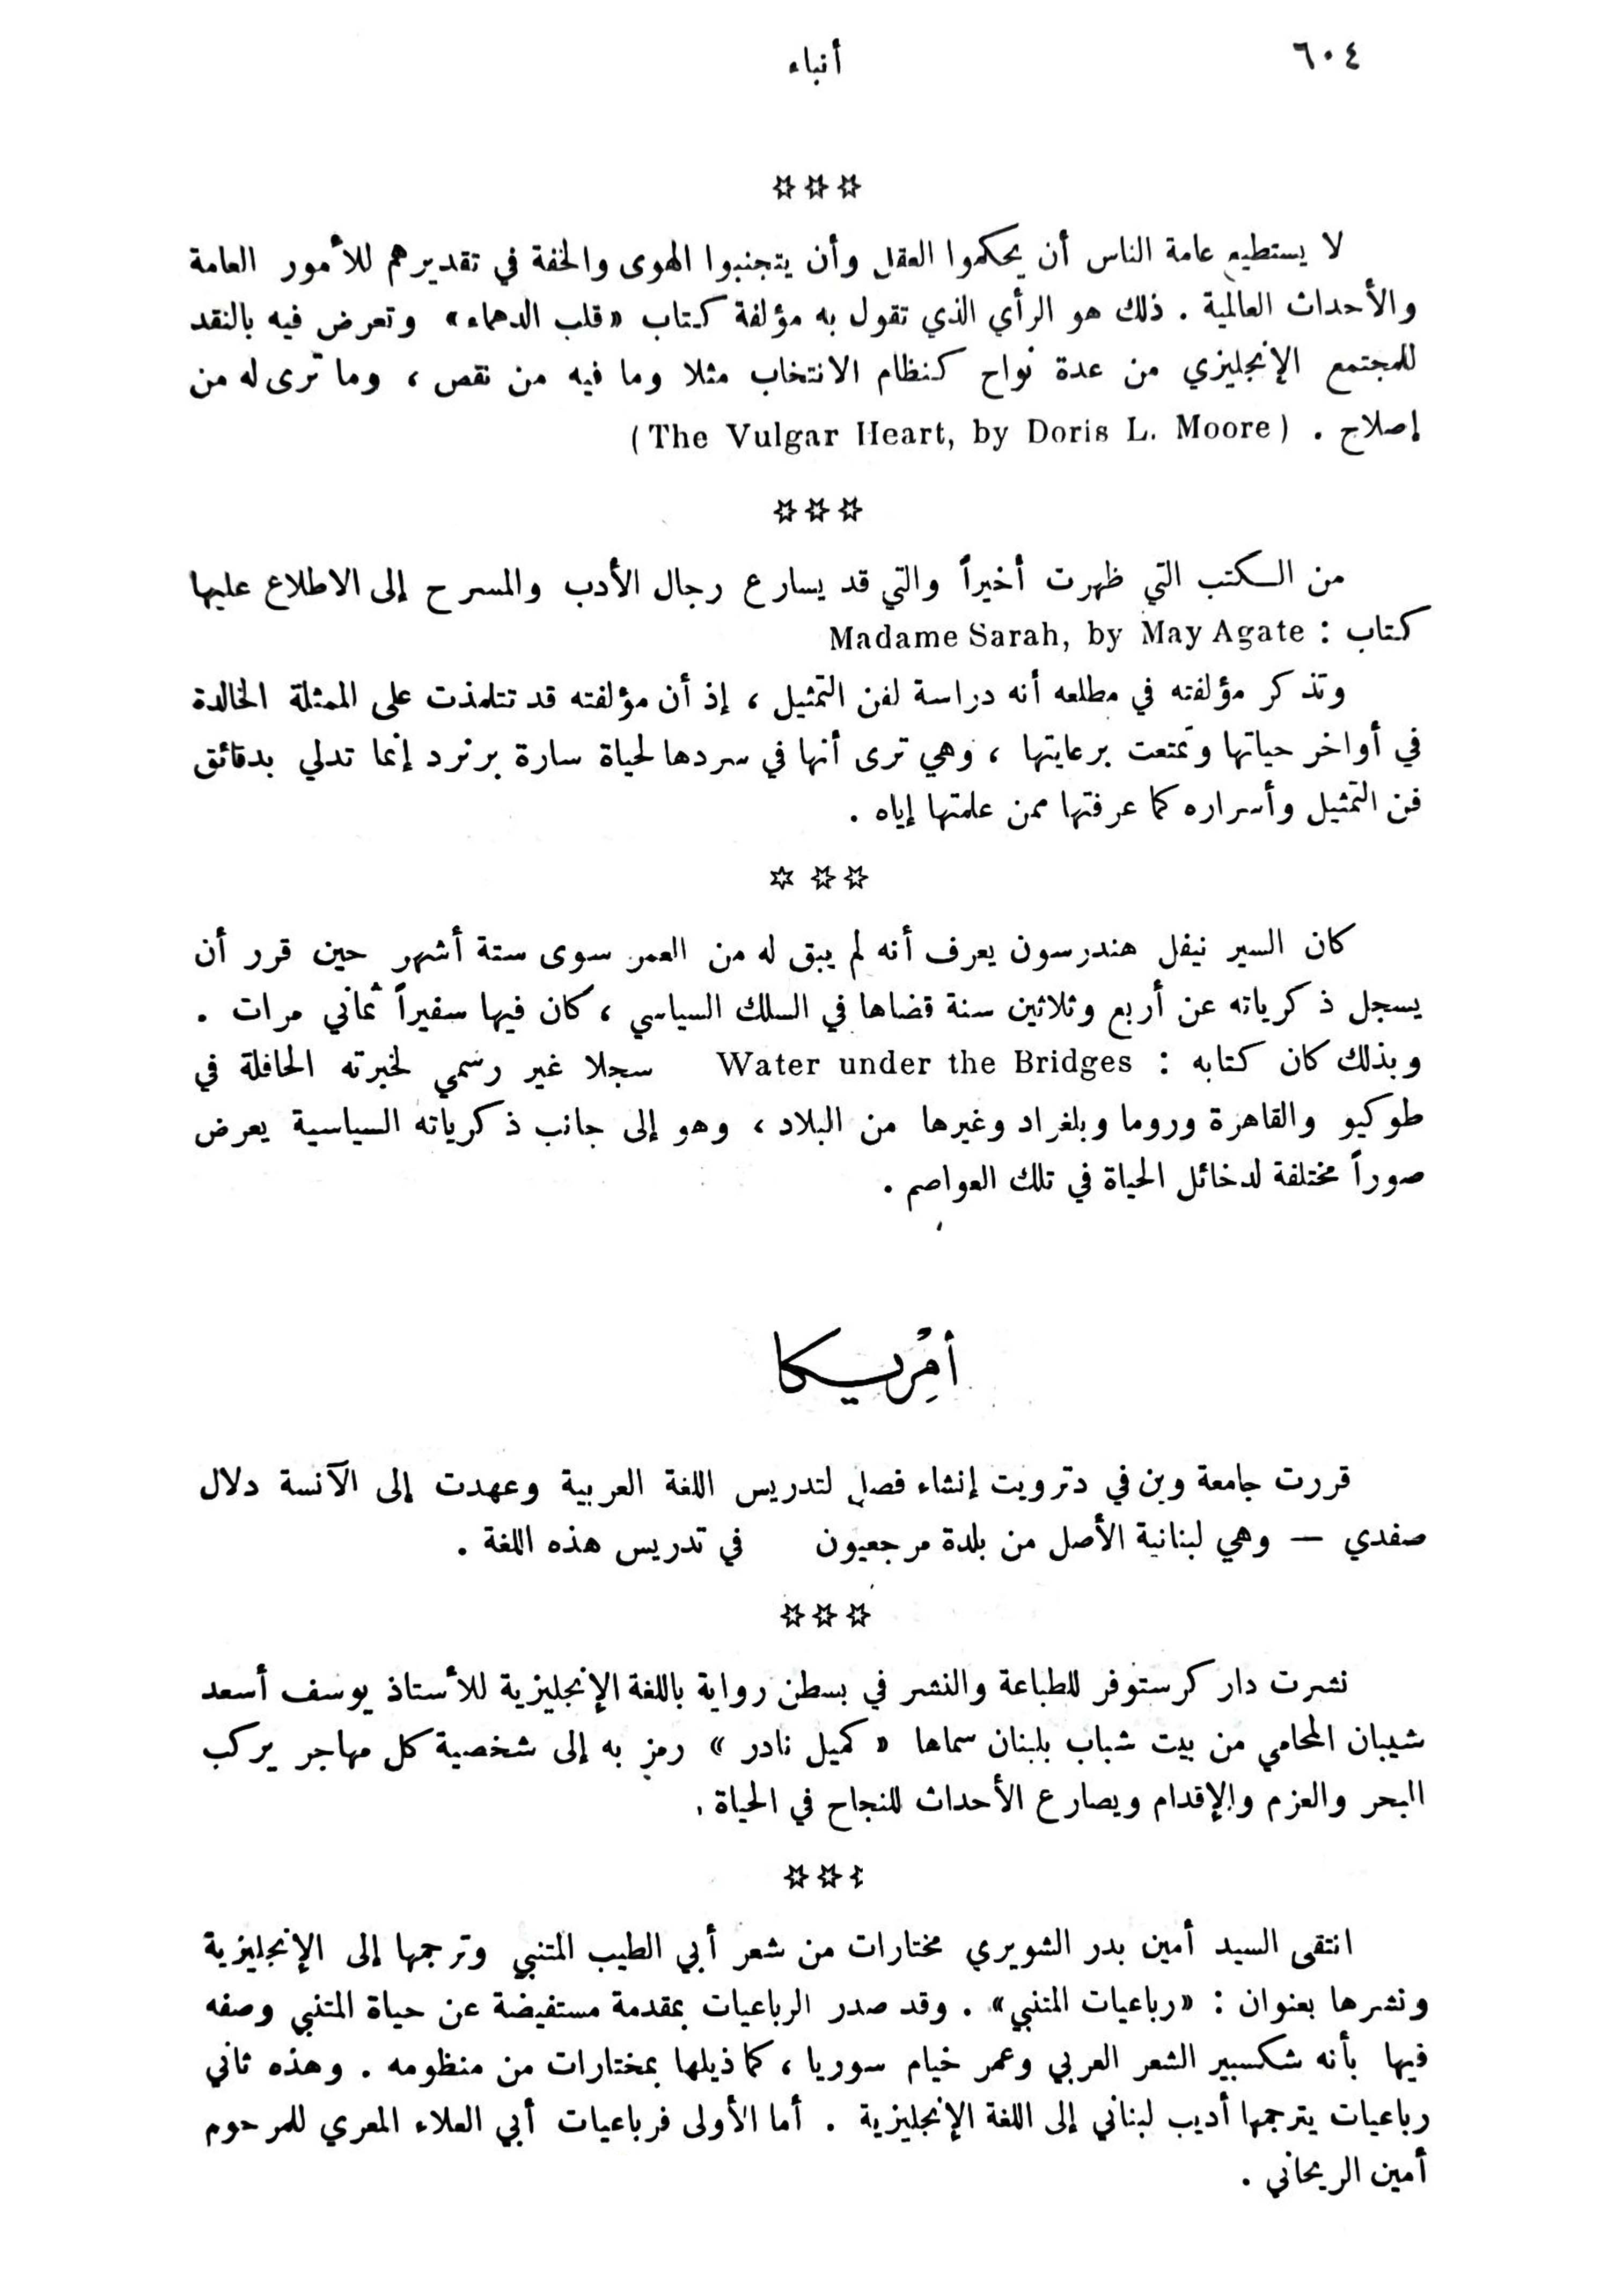 ٦٠٤
أنباء
***
لا يستطيع عامة الناس أن يحكموا العقل وأن يتجنبوا الهوى والخفة في تقديرهم للأمور العامة
والأحداث العالمية . ذلك هو الرأي الذي تقول به مؤلفة كتاب «قلب الدهماء» وتعرض فيه بالنقد
للمجتمع الإنجليزي من عدة نواح كنظام الانتخاب مثلا وما فيه من نقص ، وما ترى له من
إصلاح . (The Vulgar Heart, by Doris L. Moore)
***
من الكتب التي ظهرت أخيراً والتي قد يسارع رجال الأدب والمسرح إلى الاطلاع عليها
كتاب : Madame Sarah, by May Agate
وتذكر مؤلفته في مطلعه أنه دراسة لفن التمثيل ، إذ أن مؤلفته قد تتلمذت على الممثلة الخالدة
في أواخر حياتها وتمتعت برعايتها ، وهي ترى أنها في سردها لحياة سارة برنرد إنما تدلي بدقائق
فن التمثيل وأسراره كما عرفتها ممن علمتها إياه .
***
كان السير نيفل هندرسون يعرف أنه لم يبق له من العمر سوى ستة أشهر حين قرر أن
يسجل ذكرياته عن أربع وثلاثين سنة قضاها في السلك السياسي ، كان فيها سفيراً ثماني مرات .
وبذلك كان كتابه : Water under the Bridges سجلا غير رسمي لخبرته الحافلة في
طوكيو والقاهرة وروما وبلغراد وغيرها من البلاد ، وهو إلى جانب ذكرياته السياسية يعرض
صوراً مختلفة لدخائل الحياة في تلك العواصم .
أمريكا
قررت جامعة وين في دترويت إنشاء فصل لتدريس اللغة العربية وعهدت إلى الآنسة دلال
صفدي — وهي لبنانية الأصل من بلدة مرجعيون في تدريس هذه اللغة .
***
نشرت دار كرستوفر للطباعة والنشر في بسطن رواية باللغة الإنجليزية للأستاذ يوسف أسعد
شيبان المحامي من بيت شباب بلبنان سماها « كميل نادر » رمز به إلى شخصية كل مهاجر يركب
البحر والعزم والإقدام ويصارع الأحداث للنجاح في الحياة .
***
انتقى السيد أمين بدر الشويري مختارات من شعر أبي الطيب المتنبي وترجمها إلى الإنجليزية
ونشرها بعنوان : «رباعيات المتنبي» . وقد صدر الرباعيات بمقدمة مستفيضة عن حياة المتنبي وصفه
فيها بأنه شكسبير الشعر العربي وعمر خيام سوريا ، كما ذيلها بمختارات من منظومه . وهذه ثاني
رباعيات يترجمها أديب لبناني إلى اللغة الإنجليزية . أما الأولى فرباعيات أبي العلاء المعري للمرحوم
أمين الريحاني .